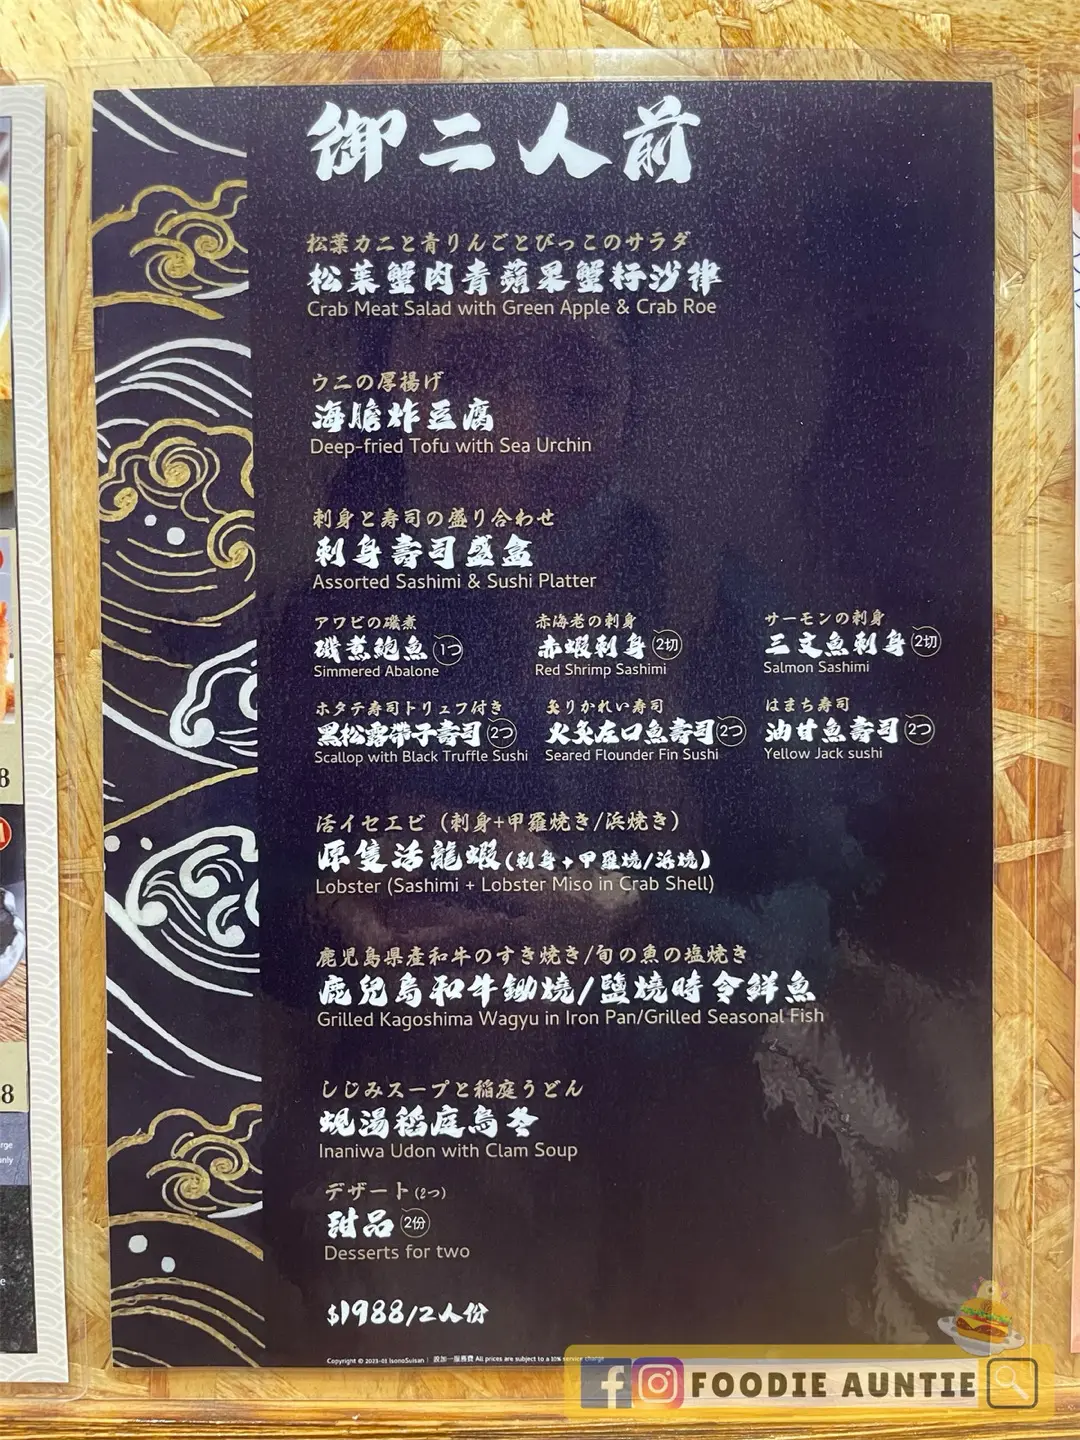 御二人前
松葉カニと青りんごとびっこのサラダ
松葉蟹肉青蘋果蟹籽沙律
Crab Meat Salad with Green Apple & Crab Roe
ウニの厚揚げ
海膽炸豆腐
Deep-fried Tofu with Sea Urchin
刺身と寿司の盛り合わせ
刺身壽司盛盒
Assorted Sashimi & Sushi Platter
アワビの磯煮
磯煮鮑魚 1つ
Simmered Abalone
赤海老の刺身
赤蝦刺身 2切
Red Shrimp Sashimi
サーモンの刺身
三文魚刺身 2切
Salmon Sashimi
ホタテ寿司トリュフ付き
黑松露帶子壽司 2つ
Scallop with Black Truffle Sushi
炙りかれい寿司
火炙左口魚壽司 2つ
Seared Flounder Fin Sushi
はまち寿司
油甘魚壽司 2つ
Yellow Jack sushi
活イセエビ（刺身+甲羅焼き/浜焼き）
原隻活龍蝦(刺身+甲羅燒/浜燒)
Lobster (Sashimi + Lobster Miso in Crab Shell)
鹿児島県産和牛のすき焼き/旬の魚の塩焼き
鹿兒島和牛鋤燒/鹽燒時令鮮魚
Grilled Kagoshima Wagyu in Iron Pan/Grilled Seasonal Fish
しじみスープと稲庭うどん
蜆湯稻庭烏冬
Inaniwa Udon with Clam Soup
デザート(2つ)
甜品 2份
Desserts for two
$1988/2人份
Copyright © 2023-01 IsonoSuisan | 設加一服務費 All prices are subject to a 10% service charge
FOODIE AUNTIE